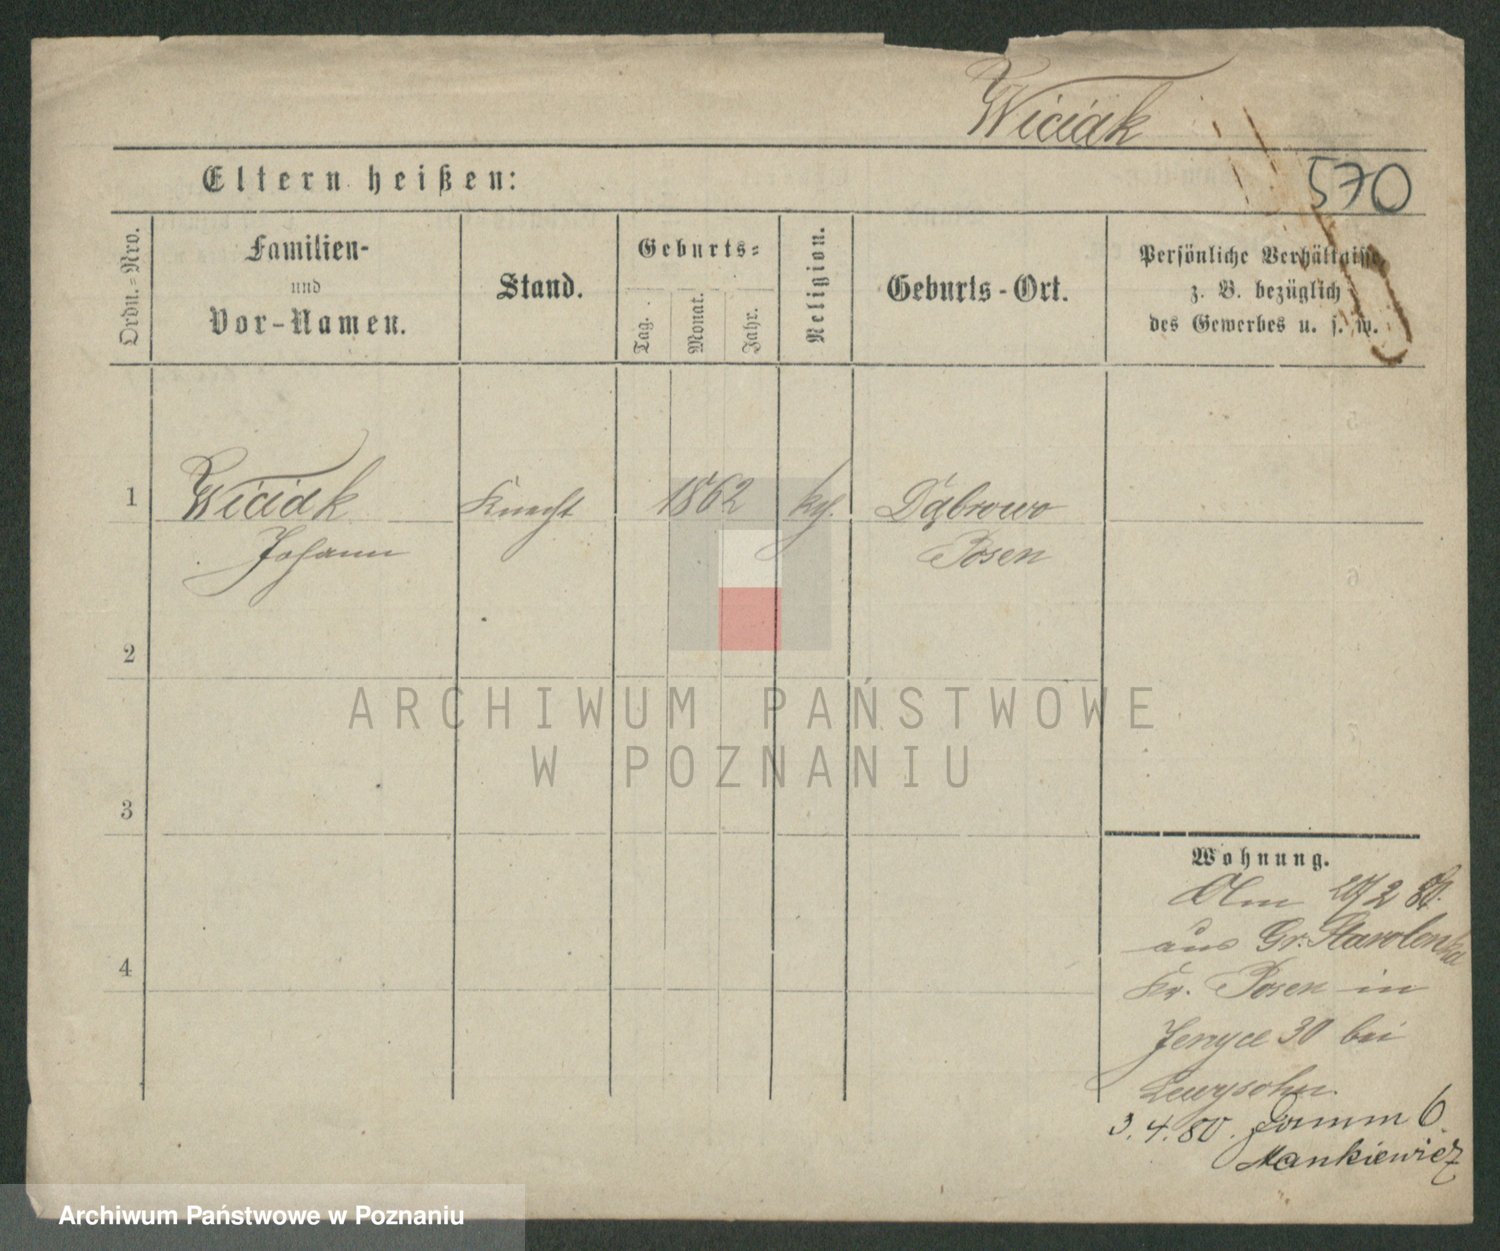 Wiciak
570
Eltern heißen:
Ordn.=Nro.
Familien-
und
Vor-Namen.
Stand.
Geburts=
Tag.
Monat.
Jahr.
Religion.
Geburts-Ort.
Persönliche Verhältnisse
z. B. bezüglich
des Gewerbes u. s. w.
1
Wiciak
Knecht
1862
Dąbrowo
Johann
Posen
2
ARCHIWUM PAŃSTWOWE
W POZNANIU
3
Wohnung.
2 80.
aus Gr. Starolenka
Kr. Posen in
4
30 bei
Lewysohn.
3. 4. 80. 6
Mankiewicz
Archiwum Państwowe w Poznaniu